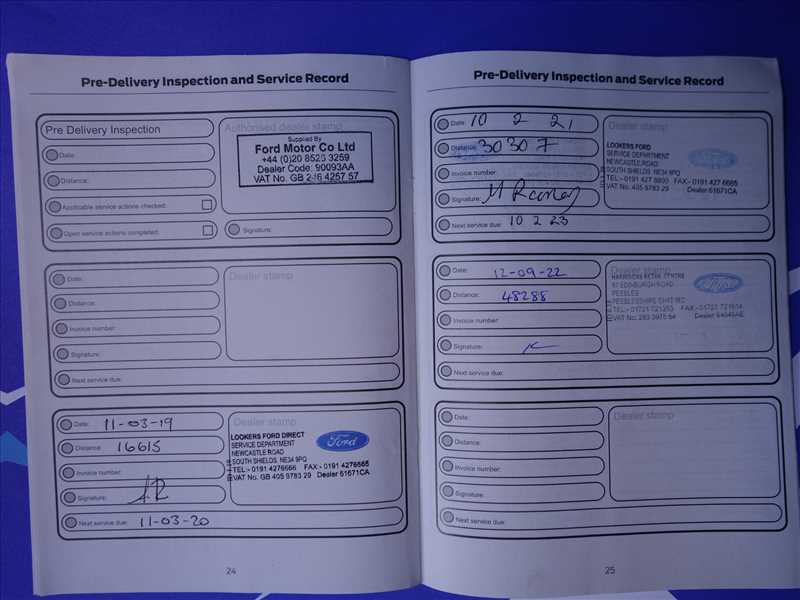 Pre-Delivery Inspection and Service Record
Pre Delivery Inspection
Date:
Distance:
Applicable service actions checked:
Open service actions completed:
Authorised dealer stamp
Supplied By
Ford Motor Co Ltd
+44 (0)20 8526 3259
Dealer Code: 90093AA
VAT No. GB 246 4257 57
Signature:
Date:
Distance:
Invoice number:
Signature:
Next service due:
Dealer stamp
Date: 11-03-19
Distance: 16615
Invoice number:
Signature: AR
Next service due: 11-03-20
Dealer stamp
LOOKERS FORD DIRECT
SERVICE DEPARTMENT
NEWCASTLE ROAD
SOUTH SHIELDS NE34 9PQ
TEL:- 0191 4276666 FAX:- 0191 4276665
VAT No: GB 405 9783 29 Dealer 61671CA
Ford
24
Pre-Delivery Inspection and Service Record
Date: 10 2 21
Distance: 30307
Invoice number:
Signature:
Next service due: 10 2 23
Dealer stamp
LOOKERS FORD
SERVICE DEPARTMENT
NEWCASTLE ROAD
SOUTH SHIELDS NE34 9PQ
TEL:- 0191 427 FAX:- 0191 427 6665
VAT No: 405 9783 29 Dealer 61671CA
Date: 12-09-22
Distance: 48288
Invoice number:
Signature:
Next service due:
Dealer stamp
RETAIL CENTRE
EDINBURGH ROAD
PEEBLES
PEEBLESSHIRE
TEL:- 01721 FAX:- 01721
VAT No: Dealer
Date:
Distance:
Invoice number:
Signature:
Next service due:
Dealer stamp
25